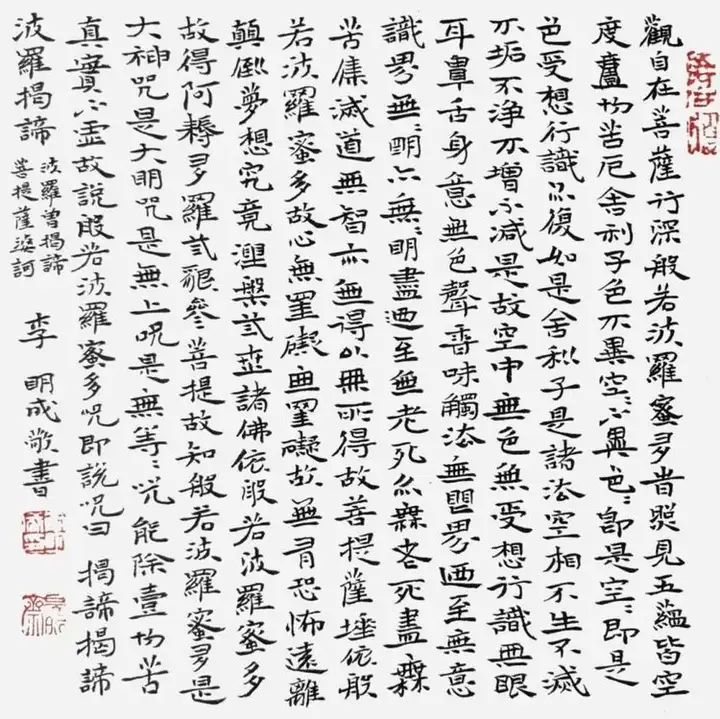 觀自在菩薩行深般若波羅蜜多時照見五蘊皆空
度壹切苦厄舍利子色不異空〻不異色〻即是空〻即是
色受想行識亦復如是舍利子是諸法空相不生不滅
不垢不淨不增不減是故空中無色無受想行識無眼
耳鼻舌身意無色聲香味觸法無眼界迺至無意
識界無〻明亦無〻明盡迺至無老死亦無老死盡無
苦集滅道無智亦無得以無所得故菩提薩埵依般
若波羅蜜多故心無罣礙無罣礙故無有恐怖遠離
顛倒夢想究竟涅槃弎世諸佛依般若波羅蜜多
故得阿耨多羅弎藐叁菩提故知般若波羅蜜多是
大神咒是大明咒是無上咒是無等〻咒能除壹切苦
真實不虛故說般若波羅蜜多咒即說咒曰 揭諦揭諦
波羅揭諦
波羅曾揭諦
菩提薩婆訶
李明成敬書